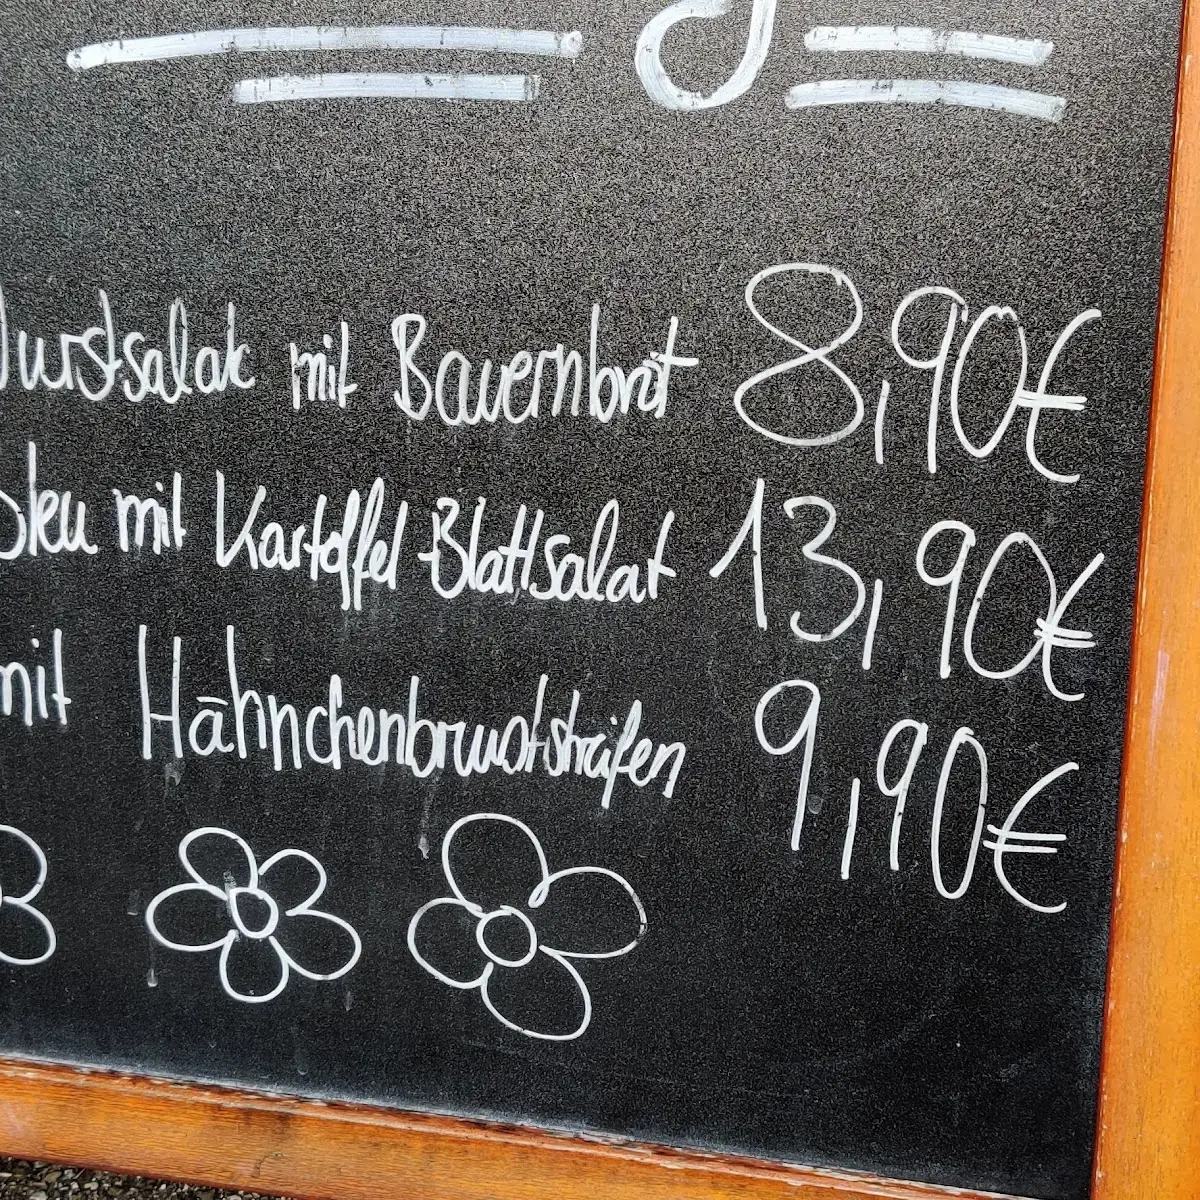 Wurstsalat mit Bauernbrot 8,90€
mit Kartoffel-Blattsalat 13,90€
mit Hähnchenbruststreifen 9,90€